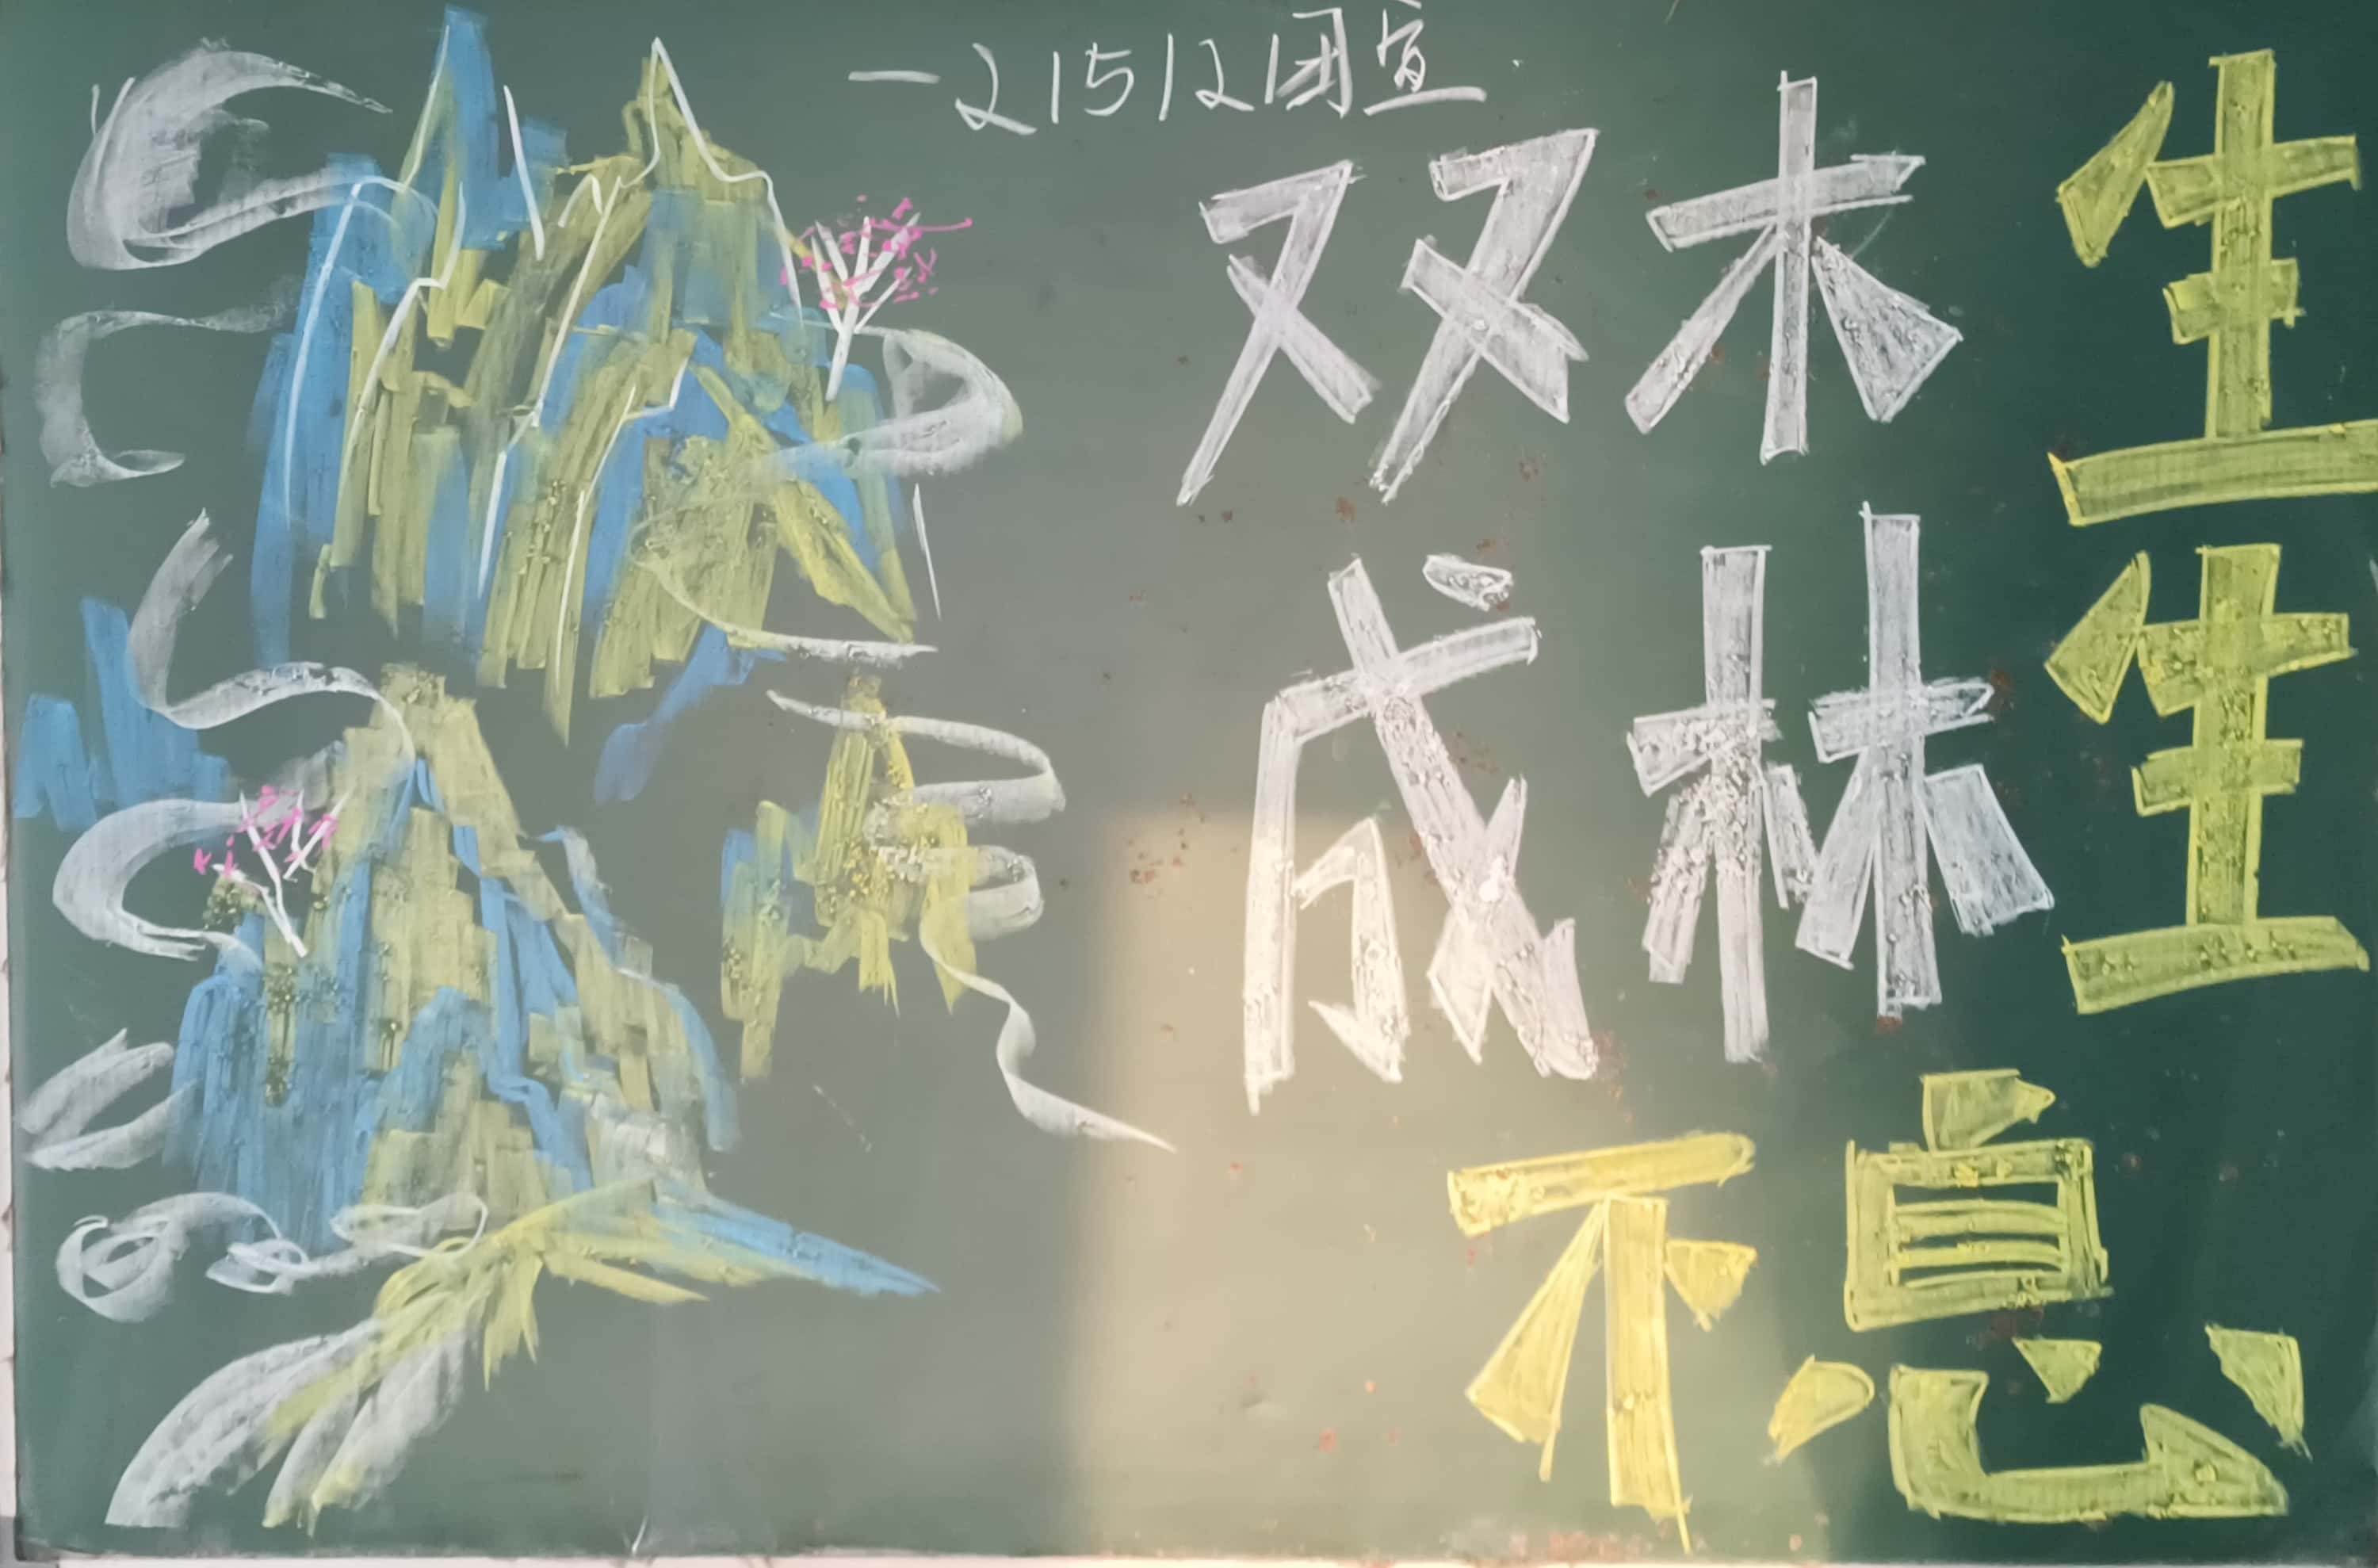 —21512团宣
双木
成林
生生
不息